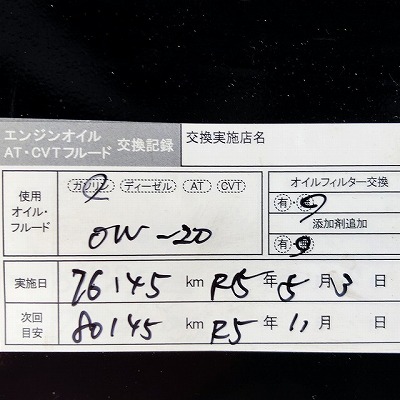 エンジンオイル
AT・CVTフルード 交換記録
交換実施店名
使用オイル・フルード
ガソリン ディーゼル AT CVT
0W-20
オイルフィルター交換
有・無
添加剤追加
有・無
実施日 76145 km R5年5月3日
次回目安 80145 km R5年11月 日